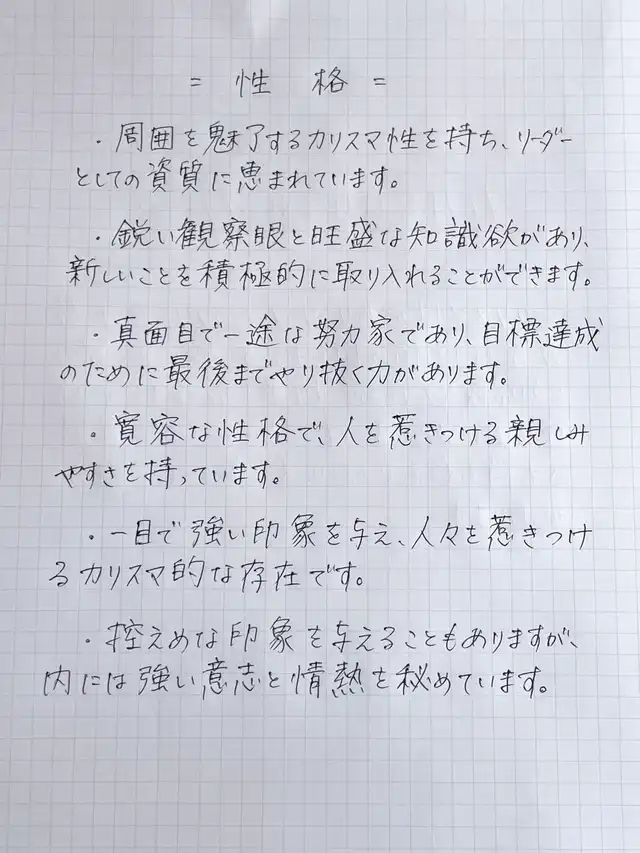 = 性 格 =
・周囲を魅了するカリスマ性を持ち、リーダー
としての資質に恵まれています。
・鋭い観察眼と旺盛な知識欲があり、
新しいことを積極的に取り入れることができます。
・真面目で一途な努力家であり、目標達成
のために最後までやり抜く力があります。
・寛容な性格で、人を惹きつける親しみ
やすさを持っています。
・一目で強い印象を与え、人々を惹きつけ
るカリスマ的な存在です。
・控えめな印象を与えることもありますが、
内には強い意志と情熱を秘めています。